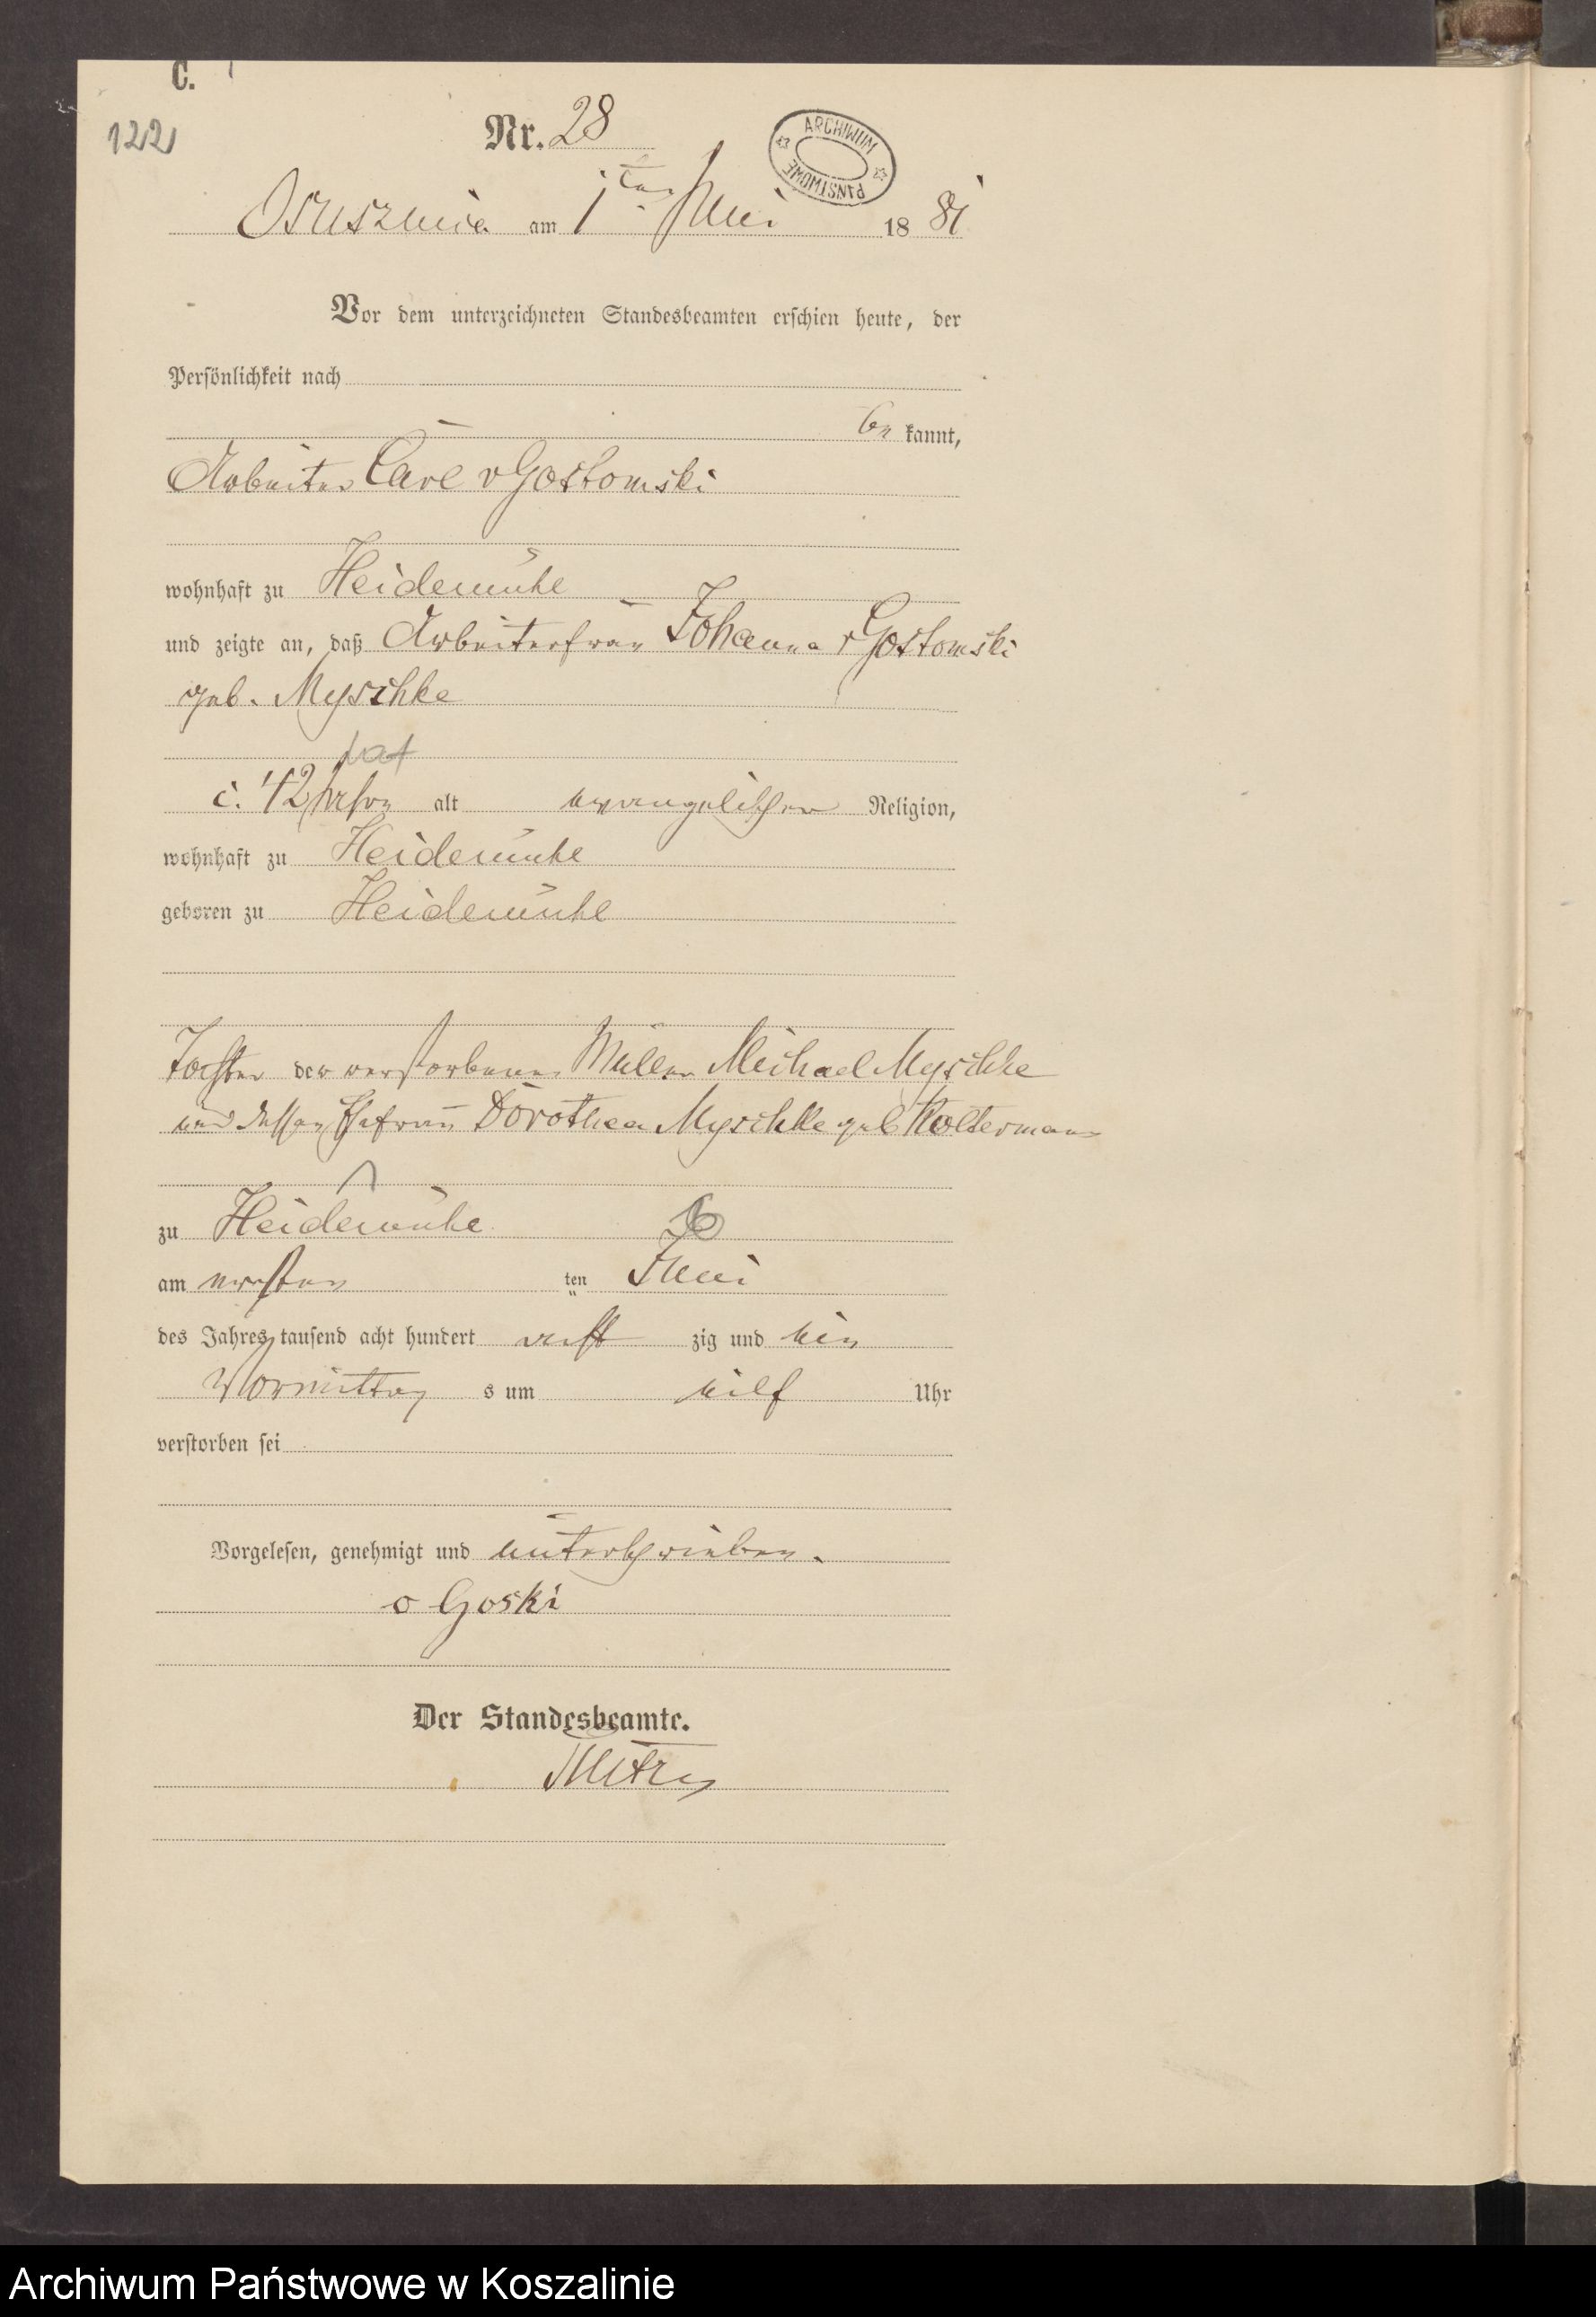 C.
122
Nr. 28
ARCHIWUM PAŃSTWOWE
Osuszniça am 1ten Juni 1881
Vor dem unterzeichneten Standesbeamten erschien heute, der
Persönlichkeit nach
be kannt,
Arbeiter Carl v Gostomski
wohnhaft zu Heidemühl
und zeigte an, daß Arbeiterfrau Johanna v Gostomski
geb. Myschke
hat
c. 42 Jahre alt evangelischer Religion,
wohnhaft zu Heidemühl
geboren zu Heidemühl
Tochter der verstorbenen Müller Michael Myschke
und dessen Ehefrau Dorothea Myschke geb Koltermann
zu Heidemühl 6
am ersten ten Juni
des Jahres tausend acht hundert acht zig und ein
Vormittag s um eilf Uhr
verstorben sei
Vorgelesen, genehmigt und unterschrieben.
v Goski
Der Standesbeamte.
Archiwum Państwowe w Koszalinie